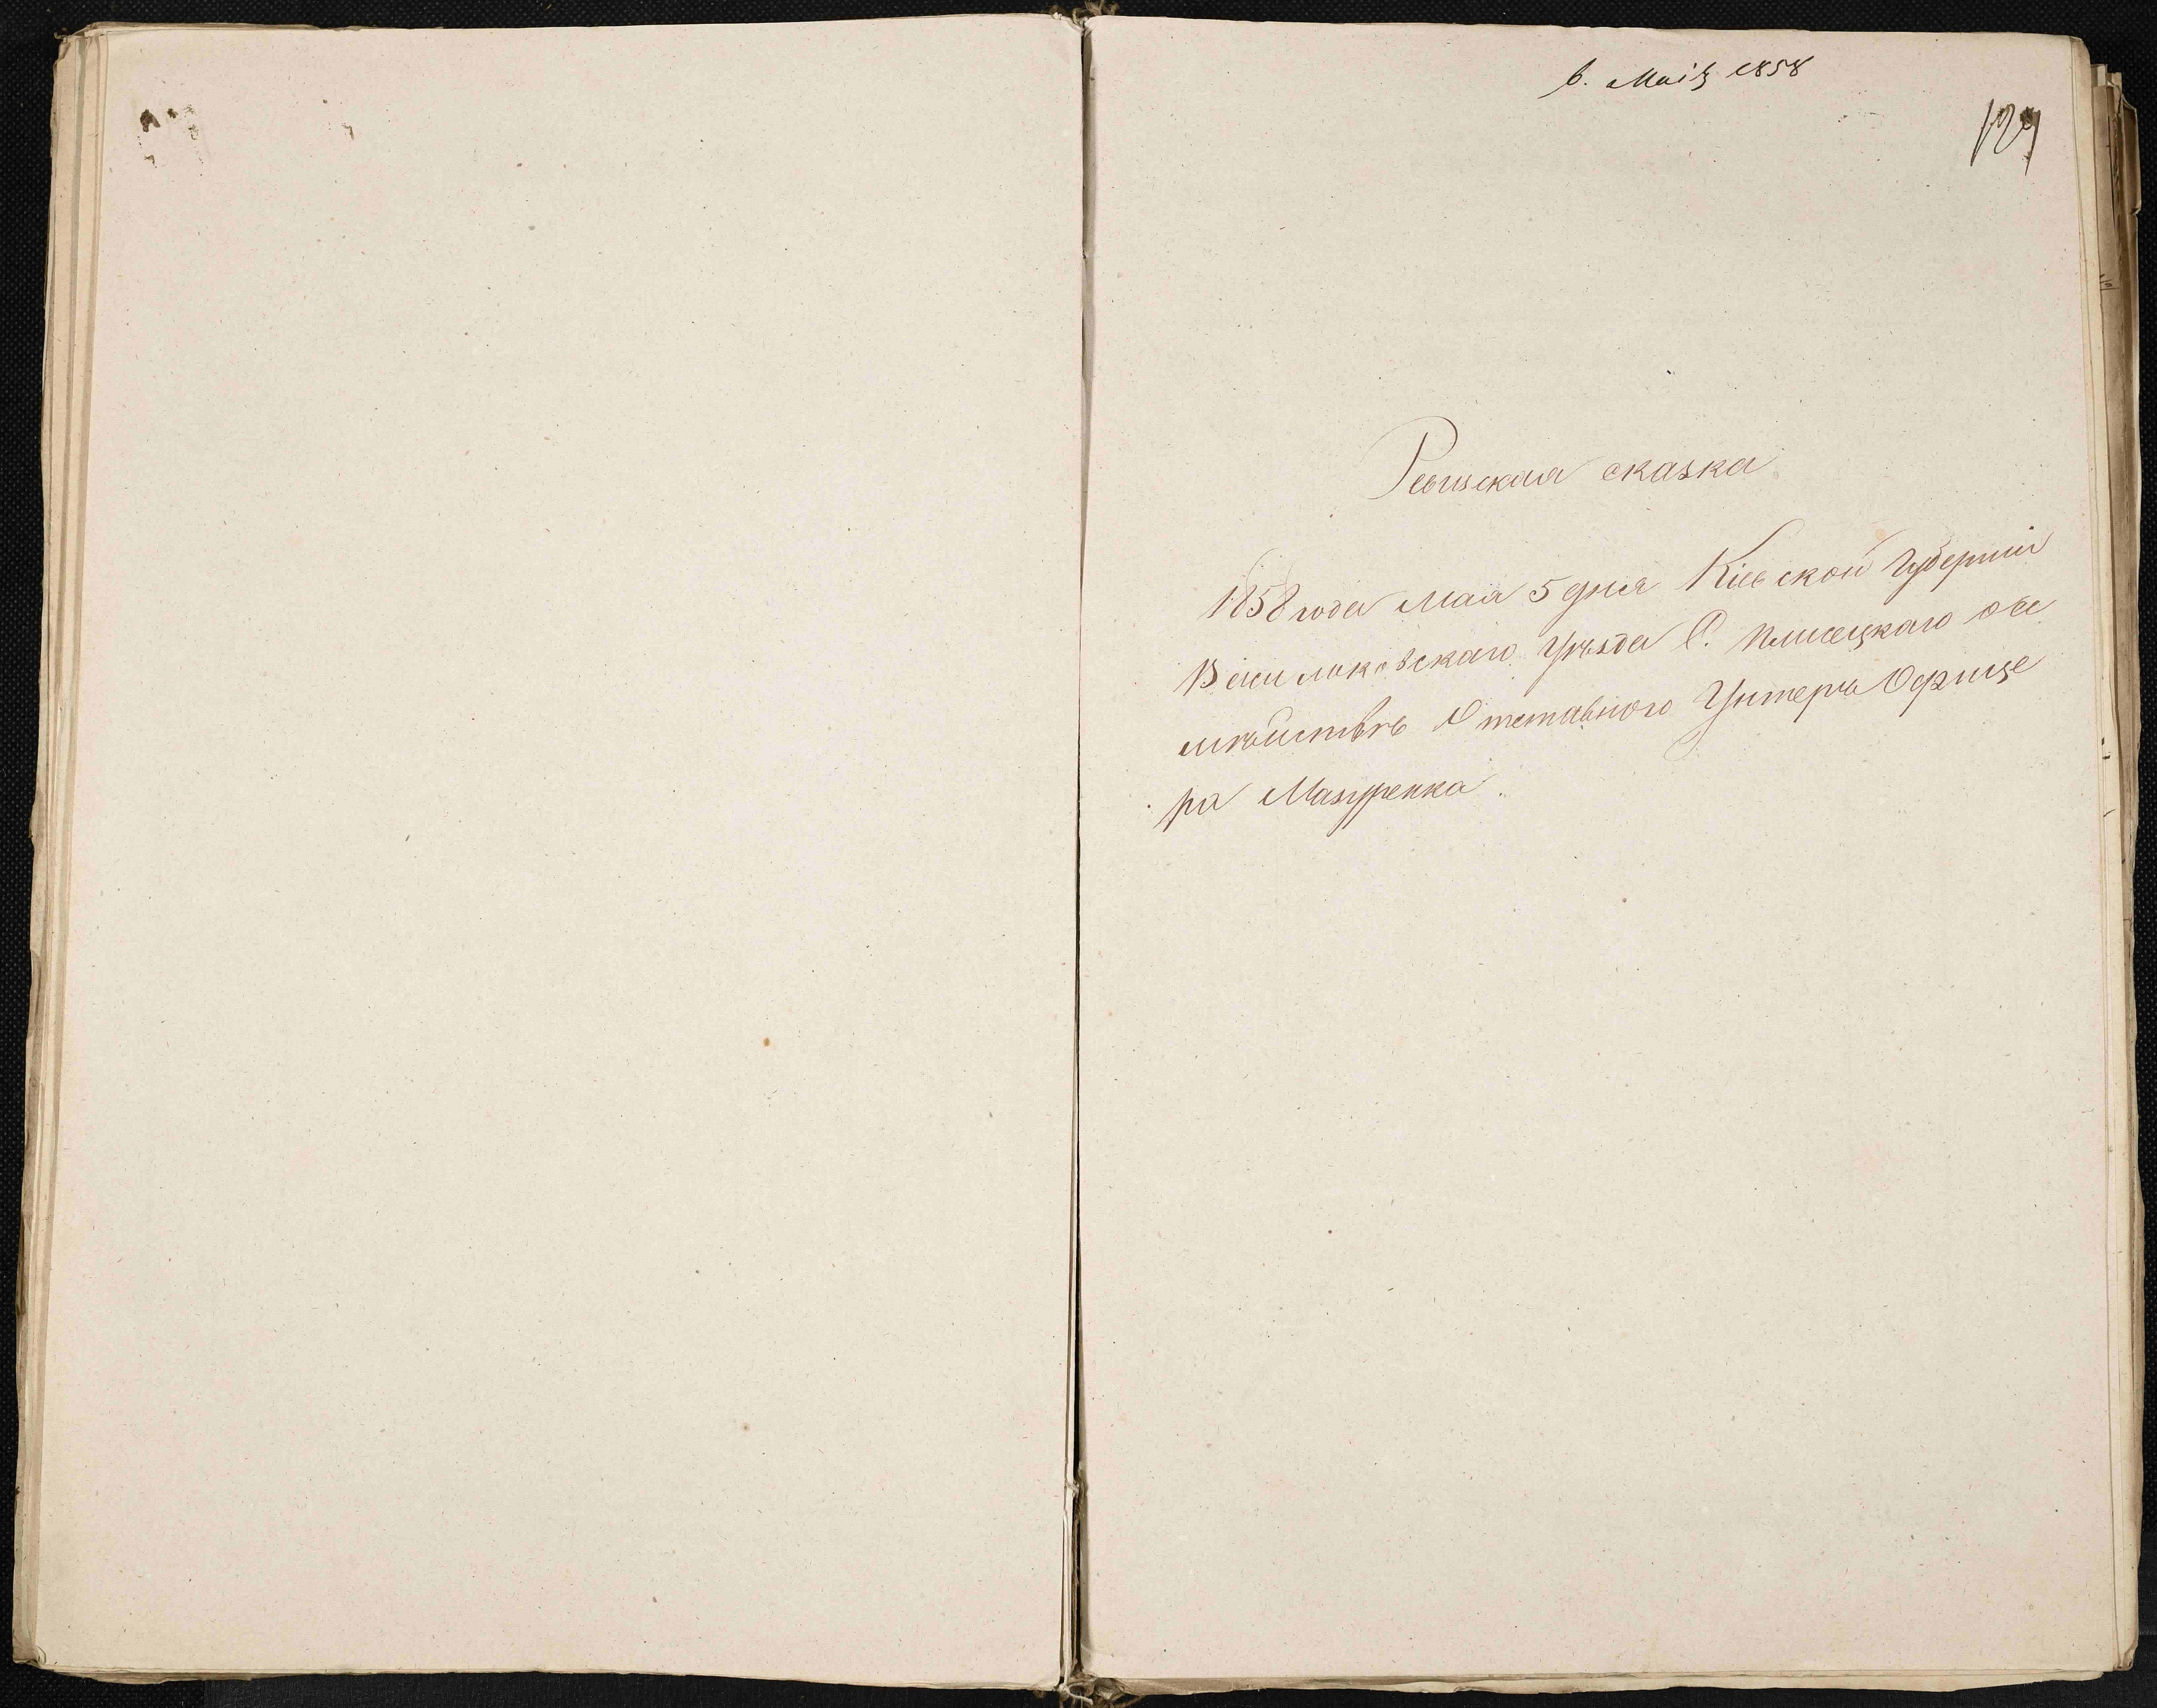 6. Маія 1858
129
Ревизская сказка
1858 года Мая 5 дня Кіевской Губерніи
Васильковскаго Уѣзда С. Плисецкаго о се
мѣйствѣ Отставного Унтеръ Офице
ра Мазуренка.